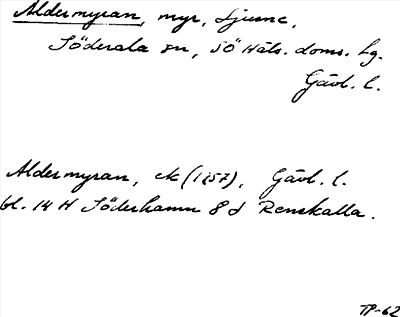 Aldermyran, myr, Ljusne,
Söderala sn, SÖ Häls. doms. hg.
Gävl. l.
Aldermyran, ek (1957), Gävl. l.
bl. 14 H Söderhamn 8 d Renskalla.
TP-62